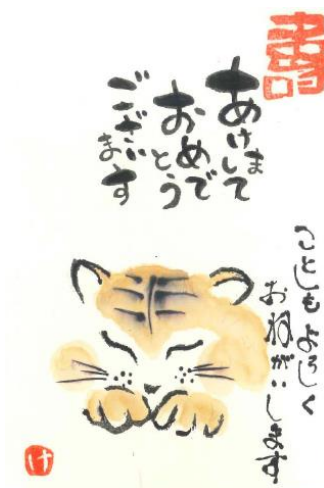 壽
あけまして
おめでとう
ございます
ことしもよろしく
お願いします
け